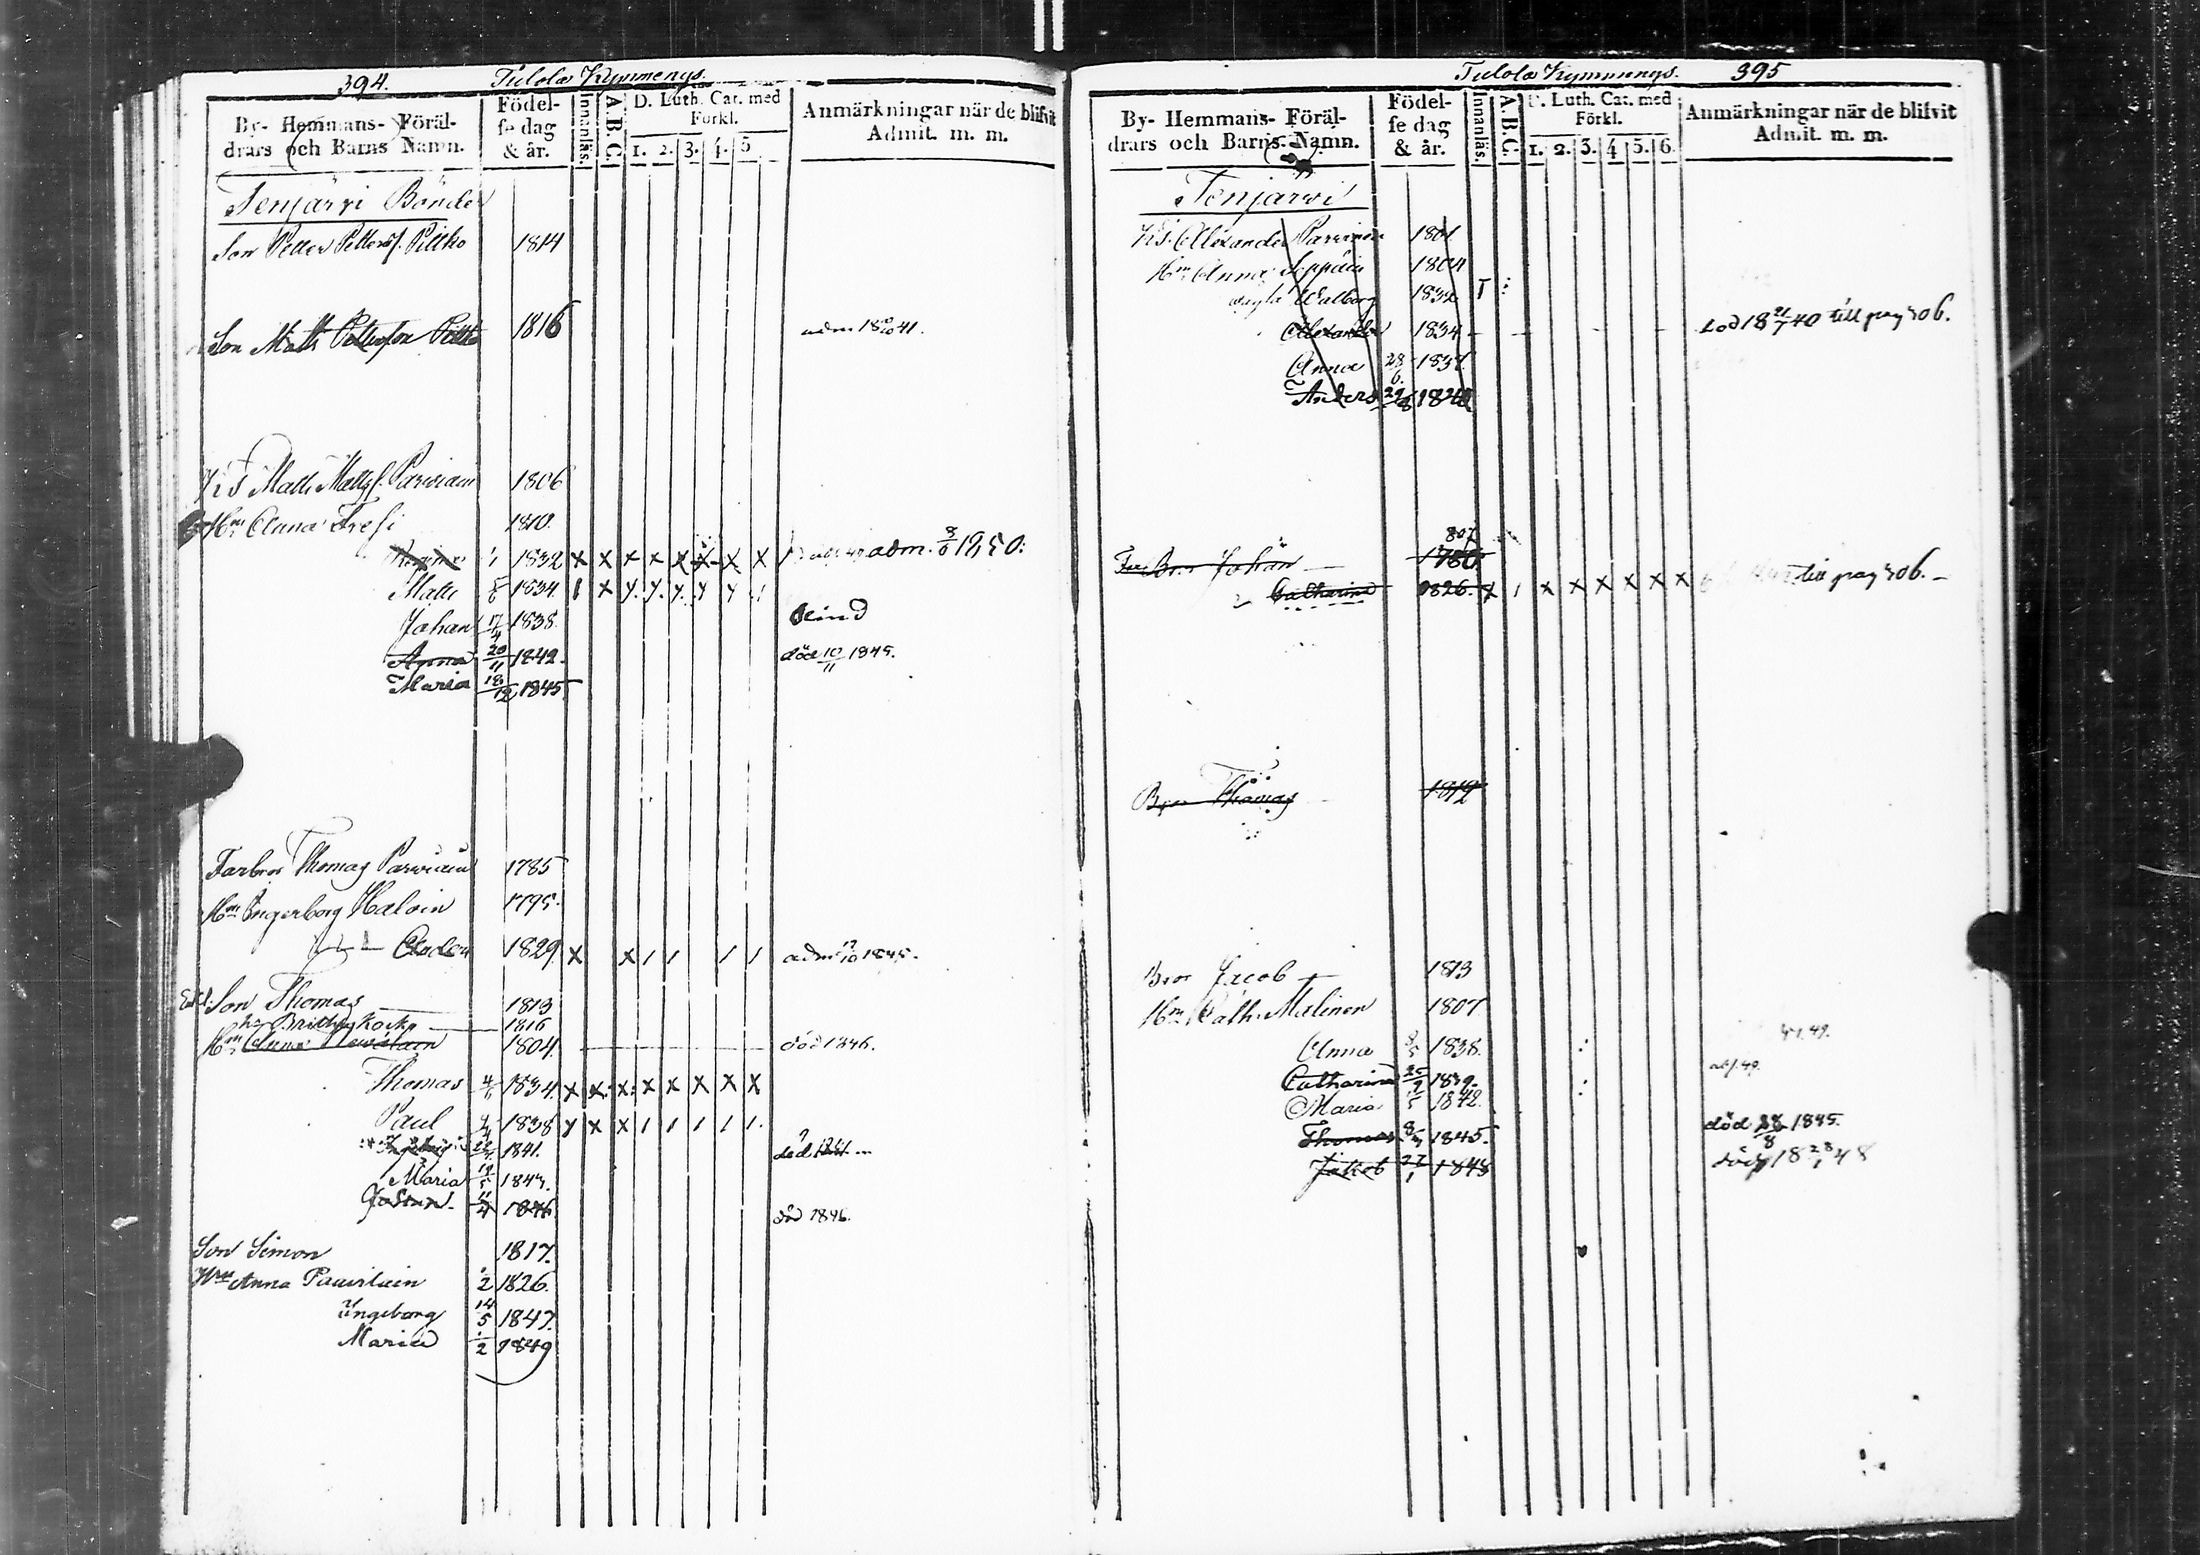 394. Tulola Kymmenegs.
By- Hemmans- Föräl-
drars och Barns Namn.
Födel-
se dag
& år.
Innanläs.
A.B.C.
D. Luth. Cat. med
Förkl.
1. 2. 3. 4. 5
Anmärkningar när de blifvit
Admit. m. m.
Tenjärvi Bönder
Son Petter Petterss. Pittko 1814
Son Matts Pettersson Pittko 1816 adm 18 41.
Matts Mattss. Parviain 1806
Hm Anna Tresi 1810.
1832 x x x x x x x x adm. 8/6 1850.
Matts 5/6 1834. 1 x y. y. y. y y
Johan 17/4 1838. Blind
Anna 20/11 1842. död 10/11 1845.
Maria 18/12 1845.
Farbror Thomas Parviain 1785
Hm Ingerborg Haloin 1795.
1829 x x 1 1 1 1 1845.
Son Thomas 1813
Britha Kock 1816
Hm Anna 1804. död 1846.
Thomas 1834. x x x x x x x x
Paul 1838 y x x 1 1 1 1 1.
1841. död
Maria 19/5 1843.
11/4 1846 död 1846.
Son Simon 1817.
Hm Anna Pauvilain 2 1826.
Ingeborg 14/5 1847.
Maria 1/2 1849
Tulola Kymmenegs. 395
By- Hemmans- Föräl-
drars och Barns Namn.
Födel-
se dag
& år.
Innanläs.
A.B.C.
D. Luth. Cat. med
Förkl.
1. 2. 3. 4 5. 6.
Anmärkningar när de blifvit
Admit. m. m.
Tenjärvi
Alexander Parviain 1801
Hm Anna Seppäin 1804
Walborg 1832
Alexander 1834 död 18 40 till pag 306.
Anna 28/6. 183
Anders 29/8 1840
Johan 807 1780
Catharina 1826. x 1 x x x x x x till pag 306.
Bror Thomas 1812
Bror Jacob 1813
Hm Cath. Malinen 1807
Anna 1838.
Catharina 25/9 1839.
Maria 1842.
Thomas 1845. död 28/8 1845.
Jakob 27/1 1848 död 18 28/1 48